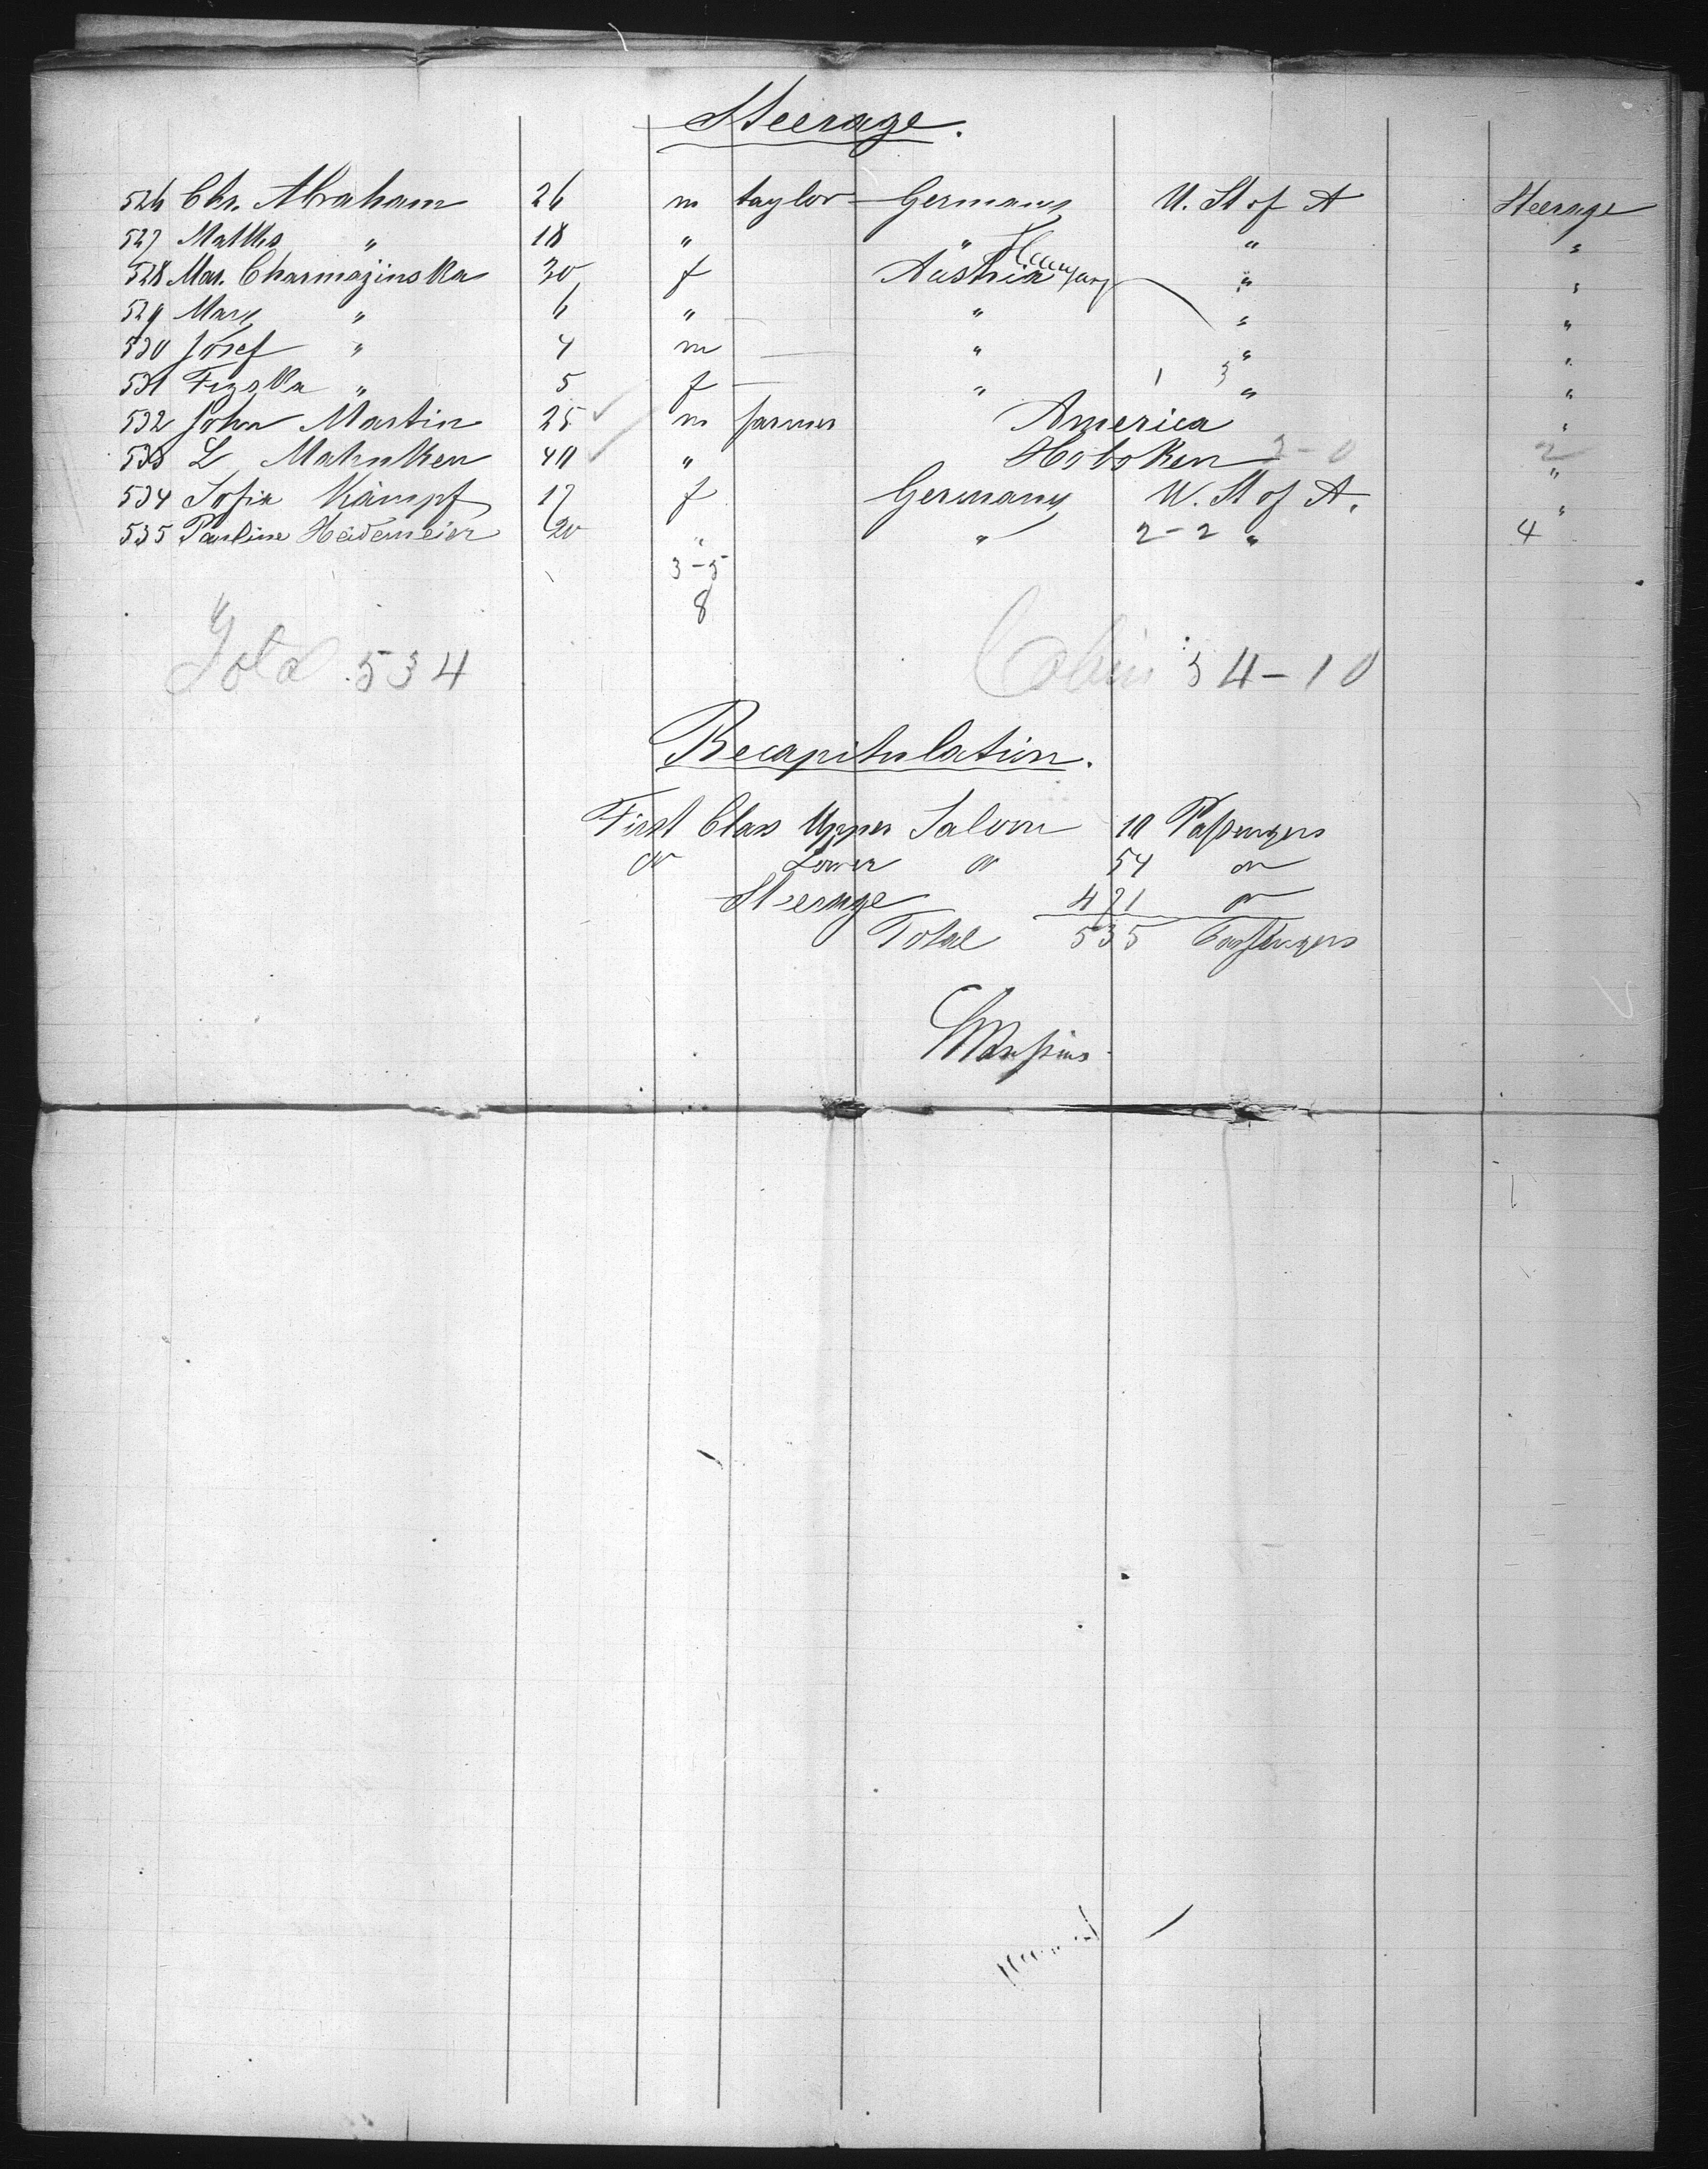 Steerage.
526 Chr. Abraham 26 m taylor Germany U. St of A Steerage
527 Mathis " 18 " " " "
528 Mar. Charmazinska 30 f Austria Hungary " "
529 Mary " 6 " " " "
530 Josef " 4 m " " "
531 " 5 f " " "
1 3
532 John Martin 25 m farmer America "
533 L Mahnken 49 " Hoboken 2-0 2 "
534 Sofia Kämpf 17 f Germany U. St of A. "
535 Pauline Heidemeier 20 " " 2-2 " 4
3-5
8
Total 534 Cabin 54-10
Recapitulation.
First Class Upper Saloon 10 Passengers
" Lower " 54 "
Steerage 471 "
Total 535 Passengers